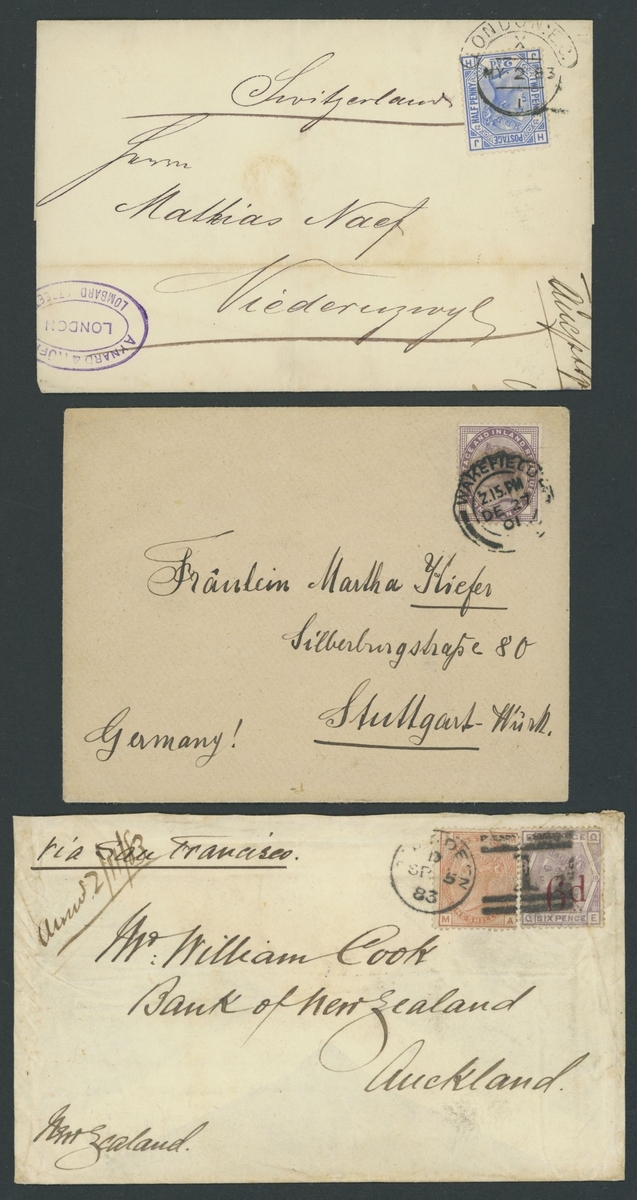 LONDON·E.C
X
MY 2 83
1
TWO PENCE
HALF PENNY
POSTAGE
2½
J
H
H
J
Switzerland
Herrn
Mathias Naef
Niederuzwyl
LOMBARD STREET
LONDON
AYNARD & RÜF
POSTAGE AND INLAND RE
WAKEFIELD
2.15.PM
DE 27
01
Fräulein Martha Kiefer
Silberburgstraße 80
Stuttgart-Würt.
Germany!
via San Francisco.
D
SP 5
83
M
A
Q
SIX PENCE
Q
E
6d
Mr. William Cook
Bank of New Zealand
Auckland.
New Zealand.